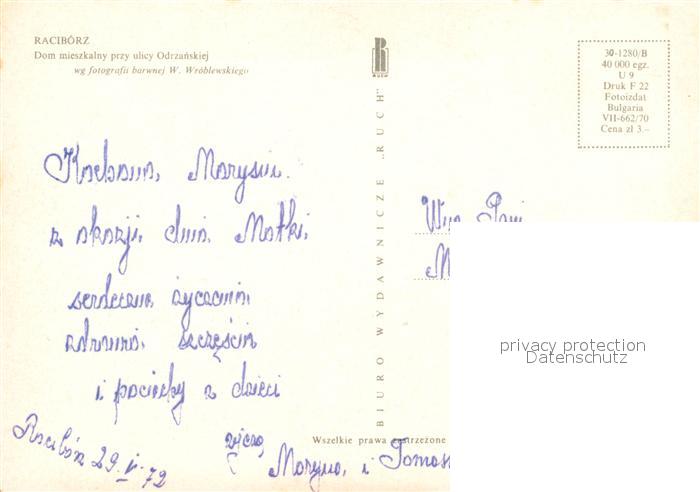 RACIBÓRZ
Dom mieszkalny przy ulicy Odrzańskiej
wg fotografii barwnej W. Wróblewskiego
R
RUCH
30-1280/B
40 000 egz.
U 9
Druk F 22
Fotoizdat
Bulgaria
VII-662/70
Cena zł 3.–
BIURO WYDAWNICZE „RUCH"
Kochana Marysiu.
z okazji dnia Matki
serdeczne życzenia
zdrowia szczęścia
i pociechy z dzieci
życzą
Maryna i Tomas
Racibórz 29.V.72
W.P. Pani
M
privacy protection
Datenschutz
Wszelkie prawa zastrzeżone